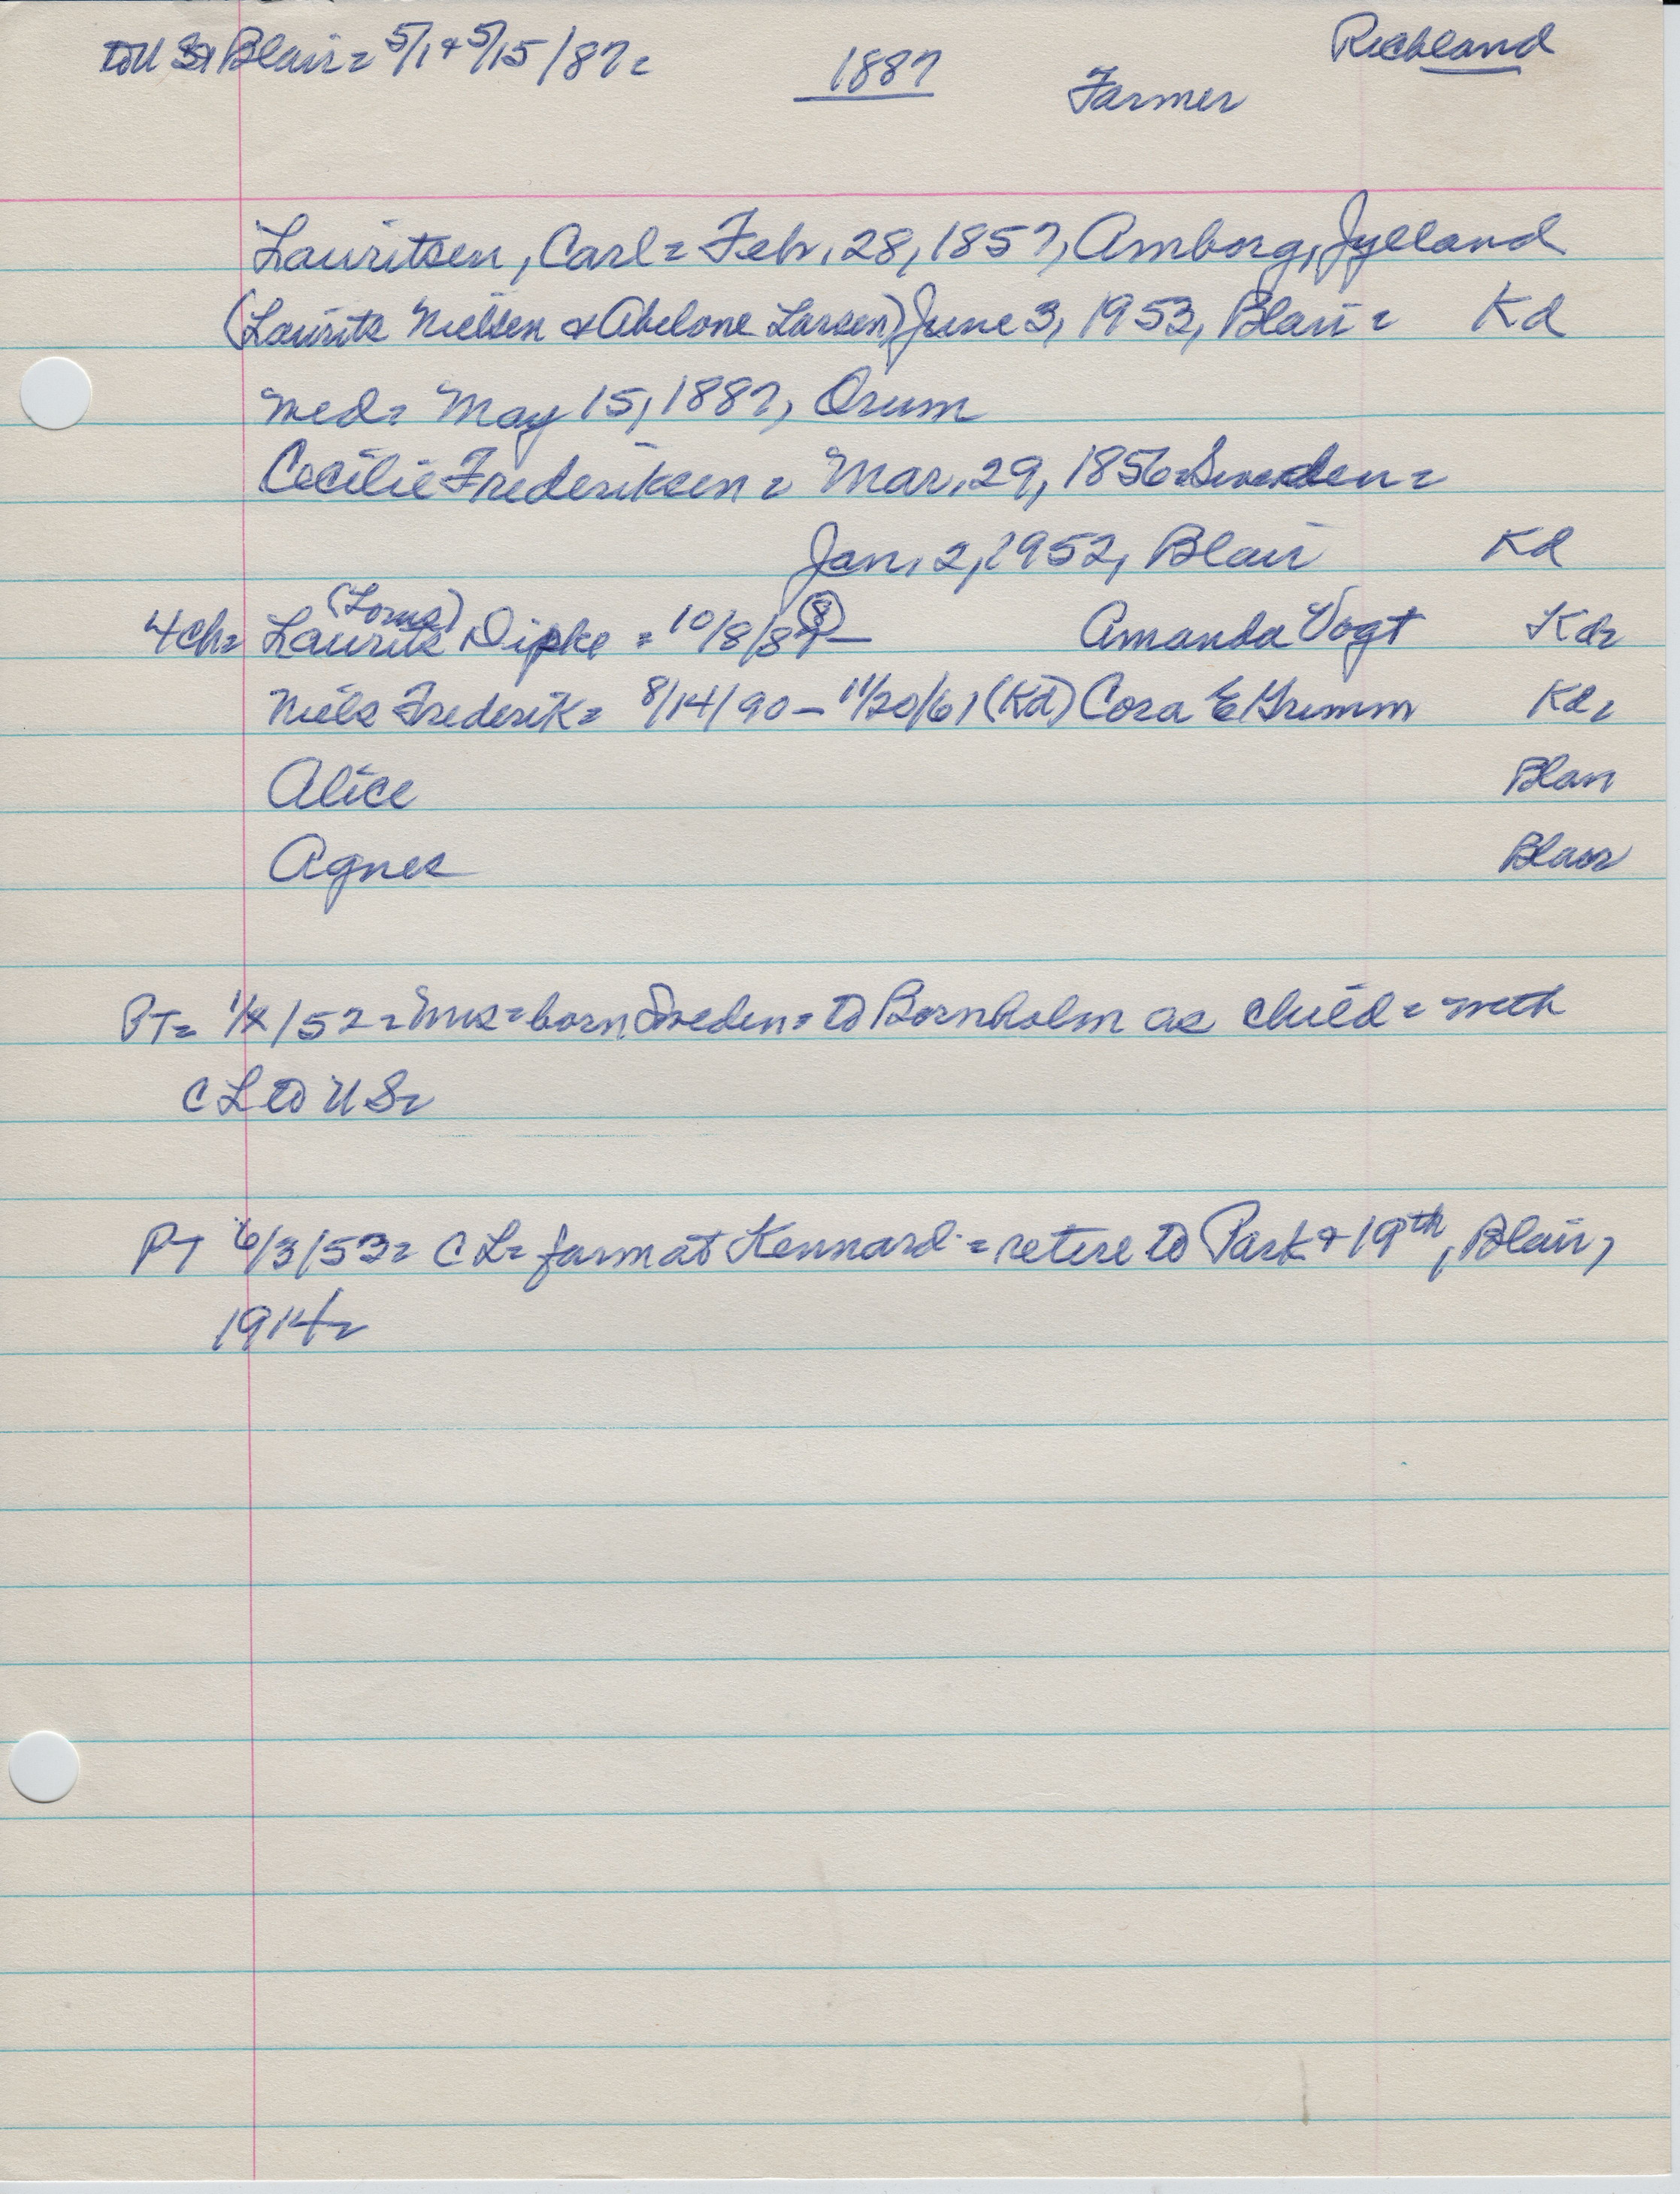 to US & Blair = 5/1 & 5/15/87 =
1887
Richland
Farmer
Lauritsen, Carl = Feb. 28, 1857, Amborg, Jylland
(Laurits Nielsen & Abelone Larsen) June 3, 1953, Blair = Kd
med = May 15, 1887, Orum
Cecilie Frederiksen = Mar. 29, 1856 = Sweden =
Jan. 2, 1952, Blair Kd
(Louis)
4ch = Laurits Dipke = 10/8/87 (8) — Amanda Vogt Kd =
Niels Frederik = 8/14/90 — 11/20/61 (Kd) Cora E Grimm Kd =
Alice Blair
Agnes Blair
PT = 1/ /52 = Mrs = born Sweden = to Bornholm as child = with
CL to US =
PT 6/3/53 = CL = farm at Kennard = retire to Park & 19th, Blair,
1914 =